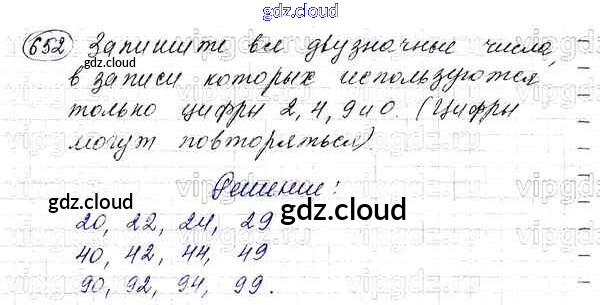 gdz.cloud
652 Запишите все двузначные числа,
в записи которых используются
только цифры 2, 4, 9 и 0. (Цифры
могут повторяться).
Решение:
20, 22, 24, 29
40, 42, 44, 49
90, 92, 94, 99.
gdz.cloud
gdz.cloud
gdz.cloud
gdz.cloud